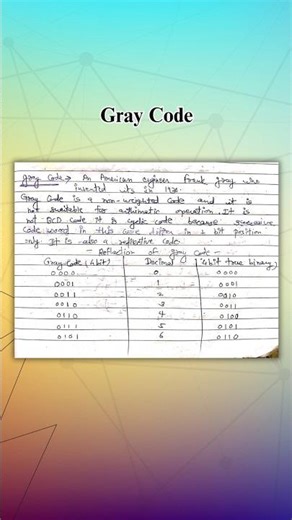 Gray Code
Gray Code → An American engineer Frank Gray who
invented its in 193
Gray Code is a non-weighted code and it is
not suitable for arithmatic operation. It is
not BCD code it is cyclic code because successive
code word in this code differ in 1 bit position
only. It is also a reflective code
- Reflection of gray code -
Gray Code (4 bit) Decimal 4 bit true binary)
0000 0 0000
0001 1 0001
0011 2 0010
0010 3 0011
0110 4 0100
0111 5 0101
0101 6 0110